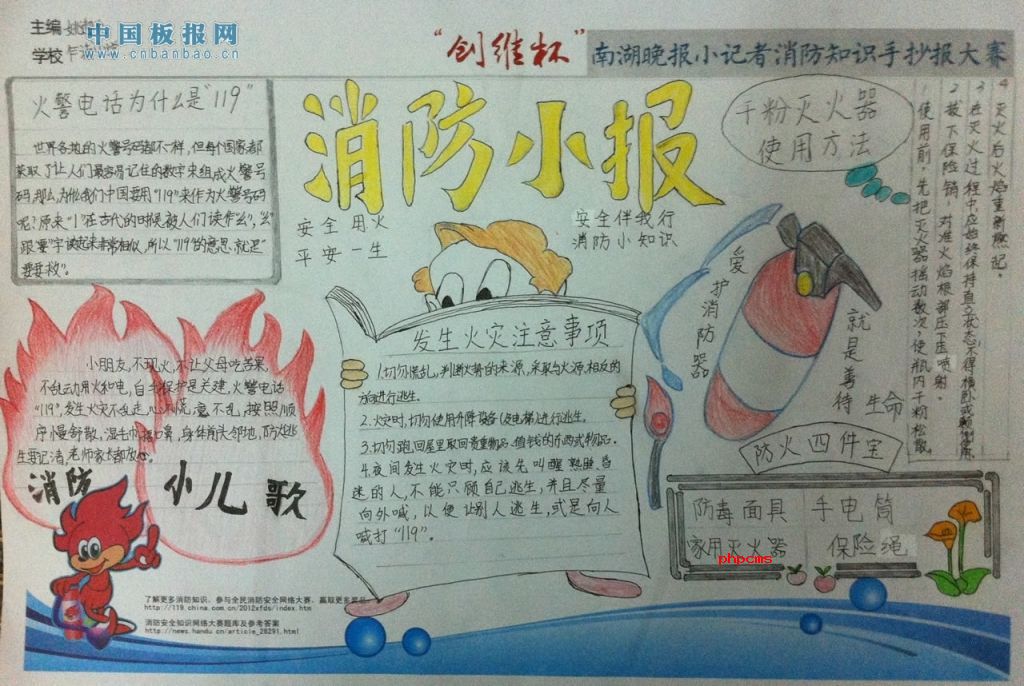 主编
学校
中国板报网
www.cnbanbao.cn
“创维杯”
南湖晚报小记者消防知识手抄报大赛
火警电话为什么是“119”
世界各地的火警号码都不一样,但每个国家都
采取了让人们最容易记住的数字来组成火警号
码,那么,为什么我们中国要用“119”来作为火警号码
呢?原来“1”在古代的时候被人们读作“幺”,“幺”
跟“要”字读起来非常相似,所以“119”的意思就是“
要要救”。
消防小报
安全用火
平安一生
安全伴我行
消防小知识
干粉灭火器
使用方法
1使用前,先把灭火器摇动数次,使瓶内干粉松散
2拔下保险销,对准火焰根部压下压喷射
3在灭火过程中应始终保持直立状态,不得横卧或颠倒使用
4灭火后火焰重新燃起。
小朋友,不玩火,不让父母吃苦果,
不乱动用火和电,自我保护是关建,火警电话
“119”,发生火灾不乱走,心不慌,意不乱,按照顺
序慢舒散,湿毛巾捂口鼻,
生要记清,老师家长都放心。
消防
小儿歌
发生火灾注意事项
1.切勿慌乱,判断火势的来源,采取与火源相反的
方向进行逃生。
2.火灾时,切勿使用升降设备(及电梯)进行逃生。
3.切勿跑回屋里取回贵重物品、值钱的东西或物品。
4.夜间发生火灾时,应该先叫醒熟睡、昏
迷的人,不能只顾自己逃生,并且尽量
向外喊,以便让别人逃生,或是向人
喊打“119”。
爱护消防器
就是善待生命
防火四件宝
防毒面具
手电筒
家用灭火器
保险绳
phpcms
了解更多消防知识、参与全民消防安全网络大赛、赢取更多奖品
http://119.china.com.cn/2012xfds/index.htm
消防安全知识网络大赛题库及参考答案
http://news.handu.cn/article_28291.html